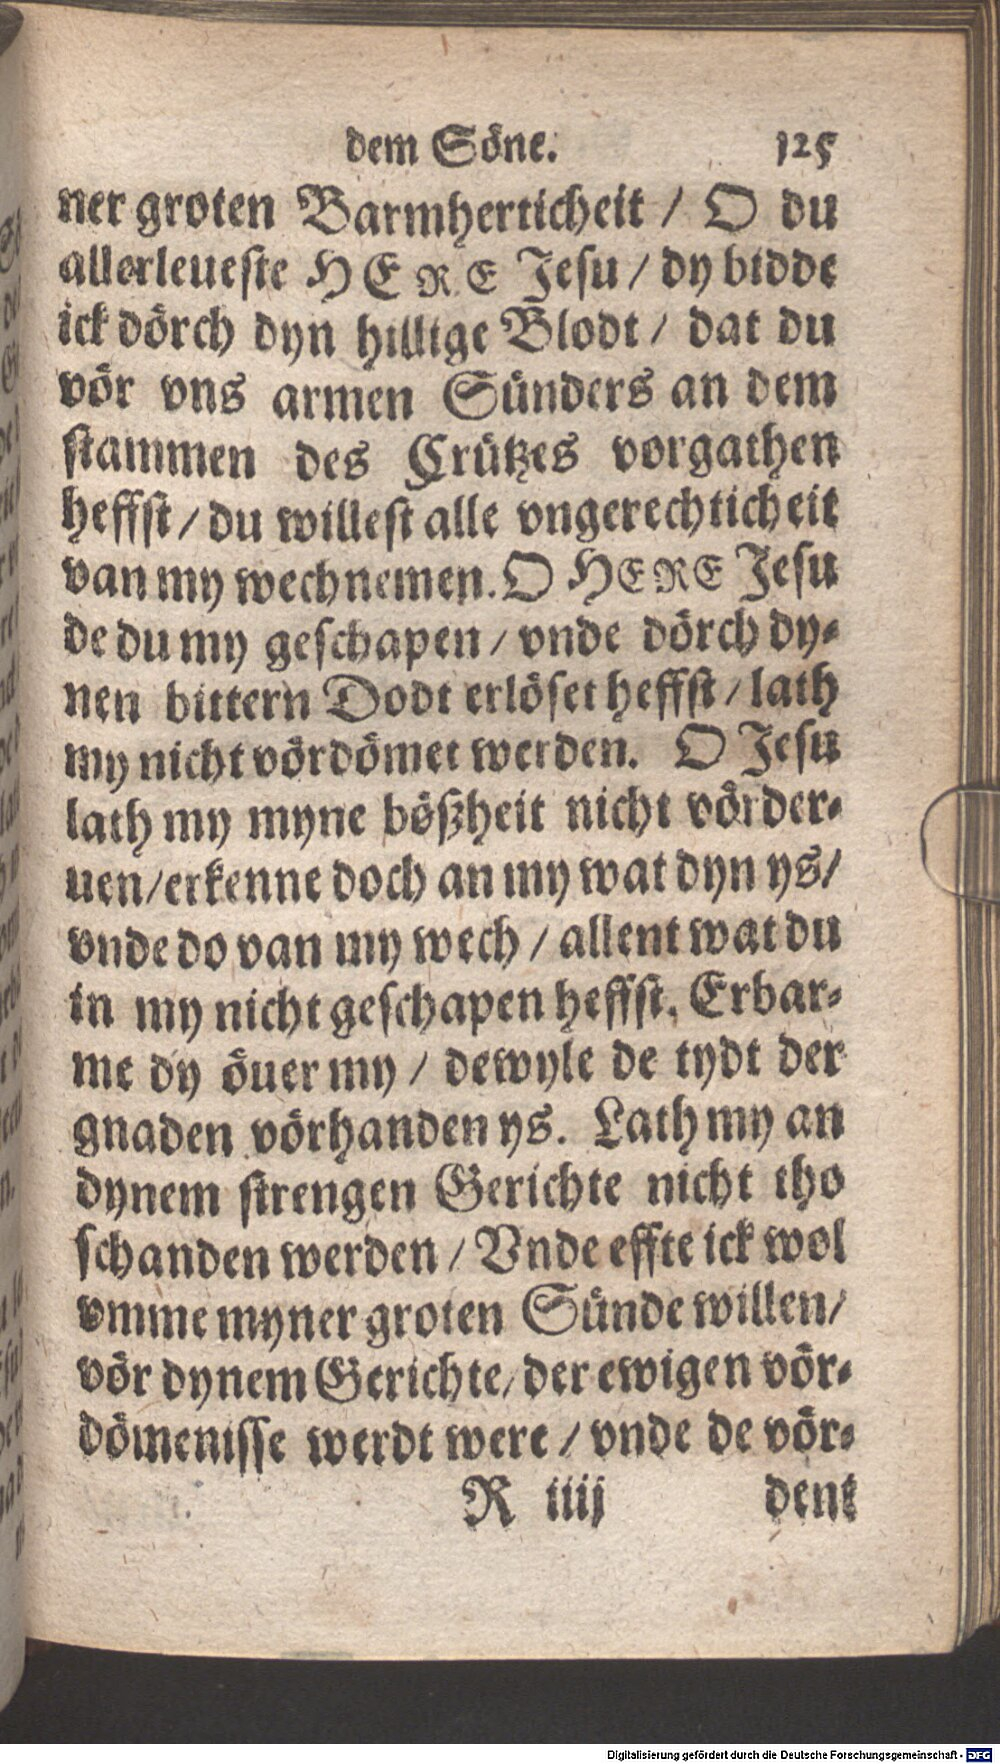 dem Söne. 125
ner groten Barmherticheit / O du
allerleueſte HERE Jeſu / dy bidde
ick dörch dyn hillige Blodt / dat du
vör vns armen Sünders an dem
ſtammen des Crützes vorgathen
heffſt / du willeſt alle vngerechticheit
van my wechnemen. O HERE Jeſu
de du my geſchapen / vnde dörch dy⸗
nen bittern Dodt erlöſet heffſt / lath
my nicht vördömet werden. O Jeſu
lath my myne bößheit nicht vörder⸗
uen / erkenne doch an my wat dyn ys /
vnde do van my wech / allent wat du
in my nicht geſchapen heffſt. Erbar⸗
me dy öuer my / dewyle de tydt der
gnaden vörhanden ys. Lath my an
dynem ſtrengen Gerichte nicht tho
ſchanden werden / Vnde effte ick wol
vmme myner groten Sünde willen /
vör dynem Gerichte / der ewigen vör⸗
dömeniſſe werdt were / vnde de vör⸗
R iiij dent
Digitalisierung gefördert durch die Deutsche Forschungsgemeinschaft - DFG